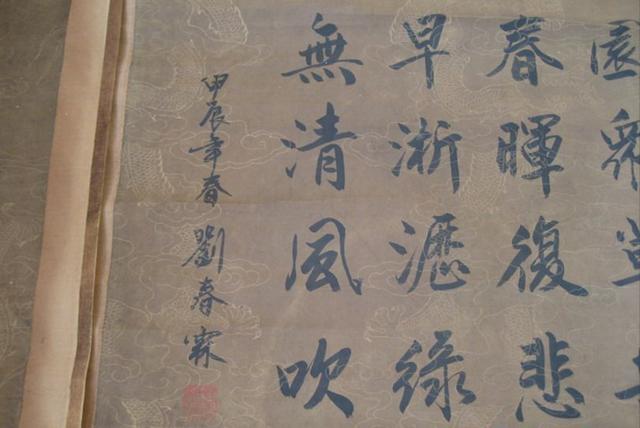 園
春暉復悲
早淅瀝綠
無清風吹
甲辰年春劉春霖